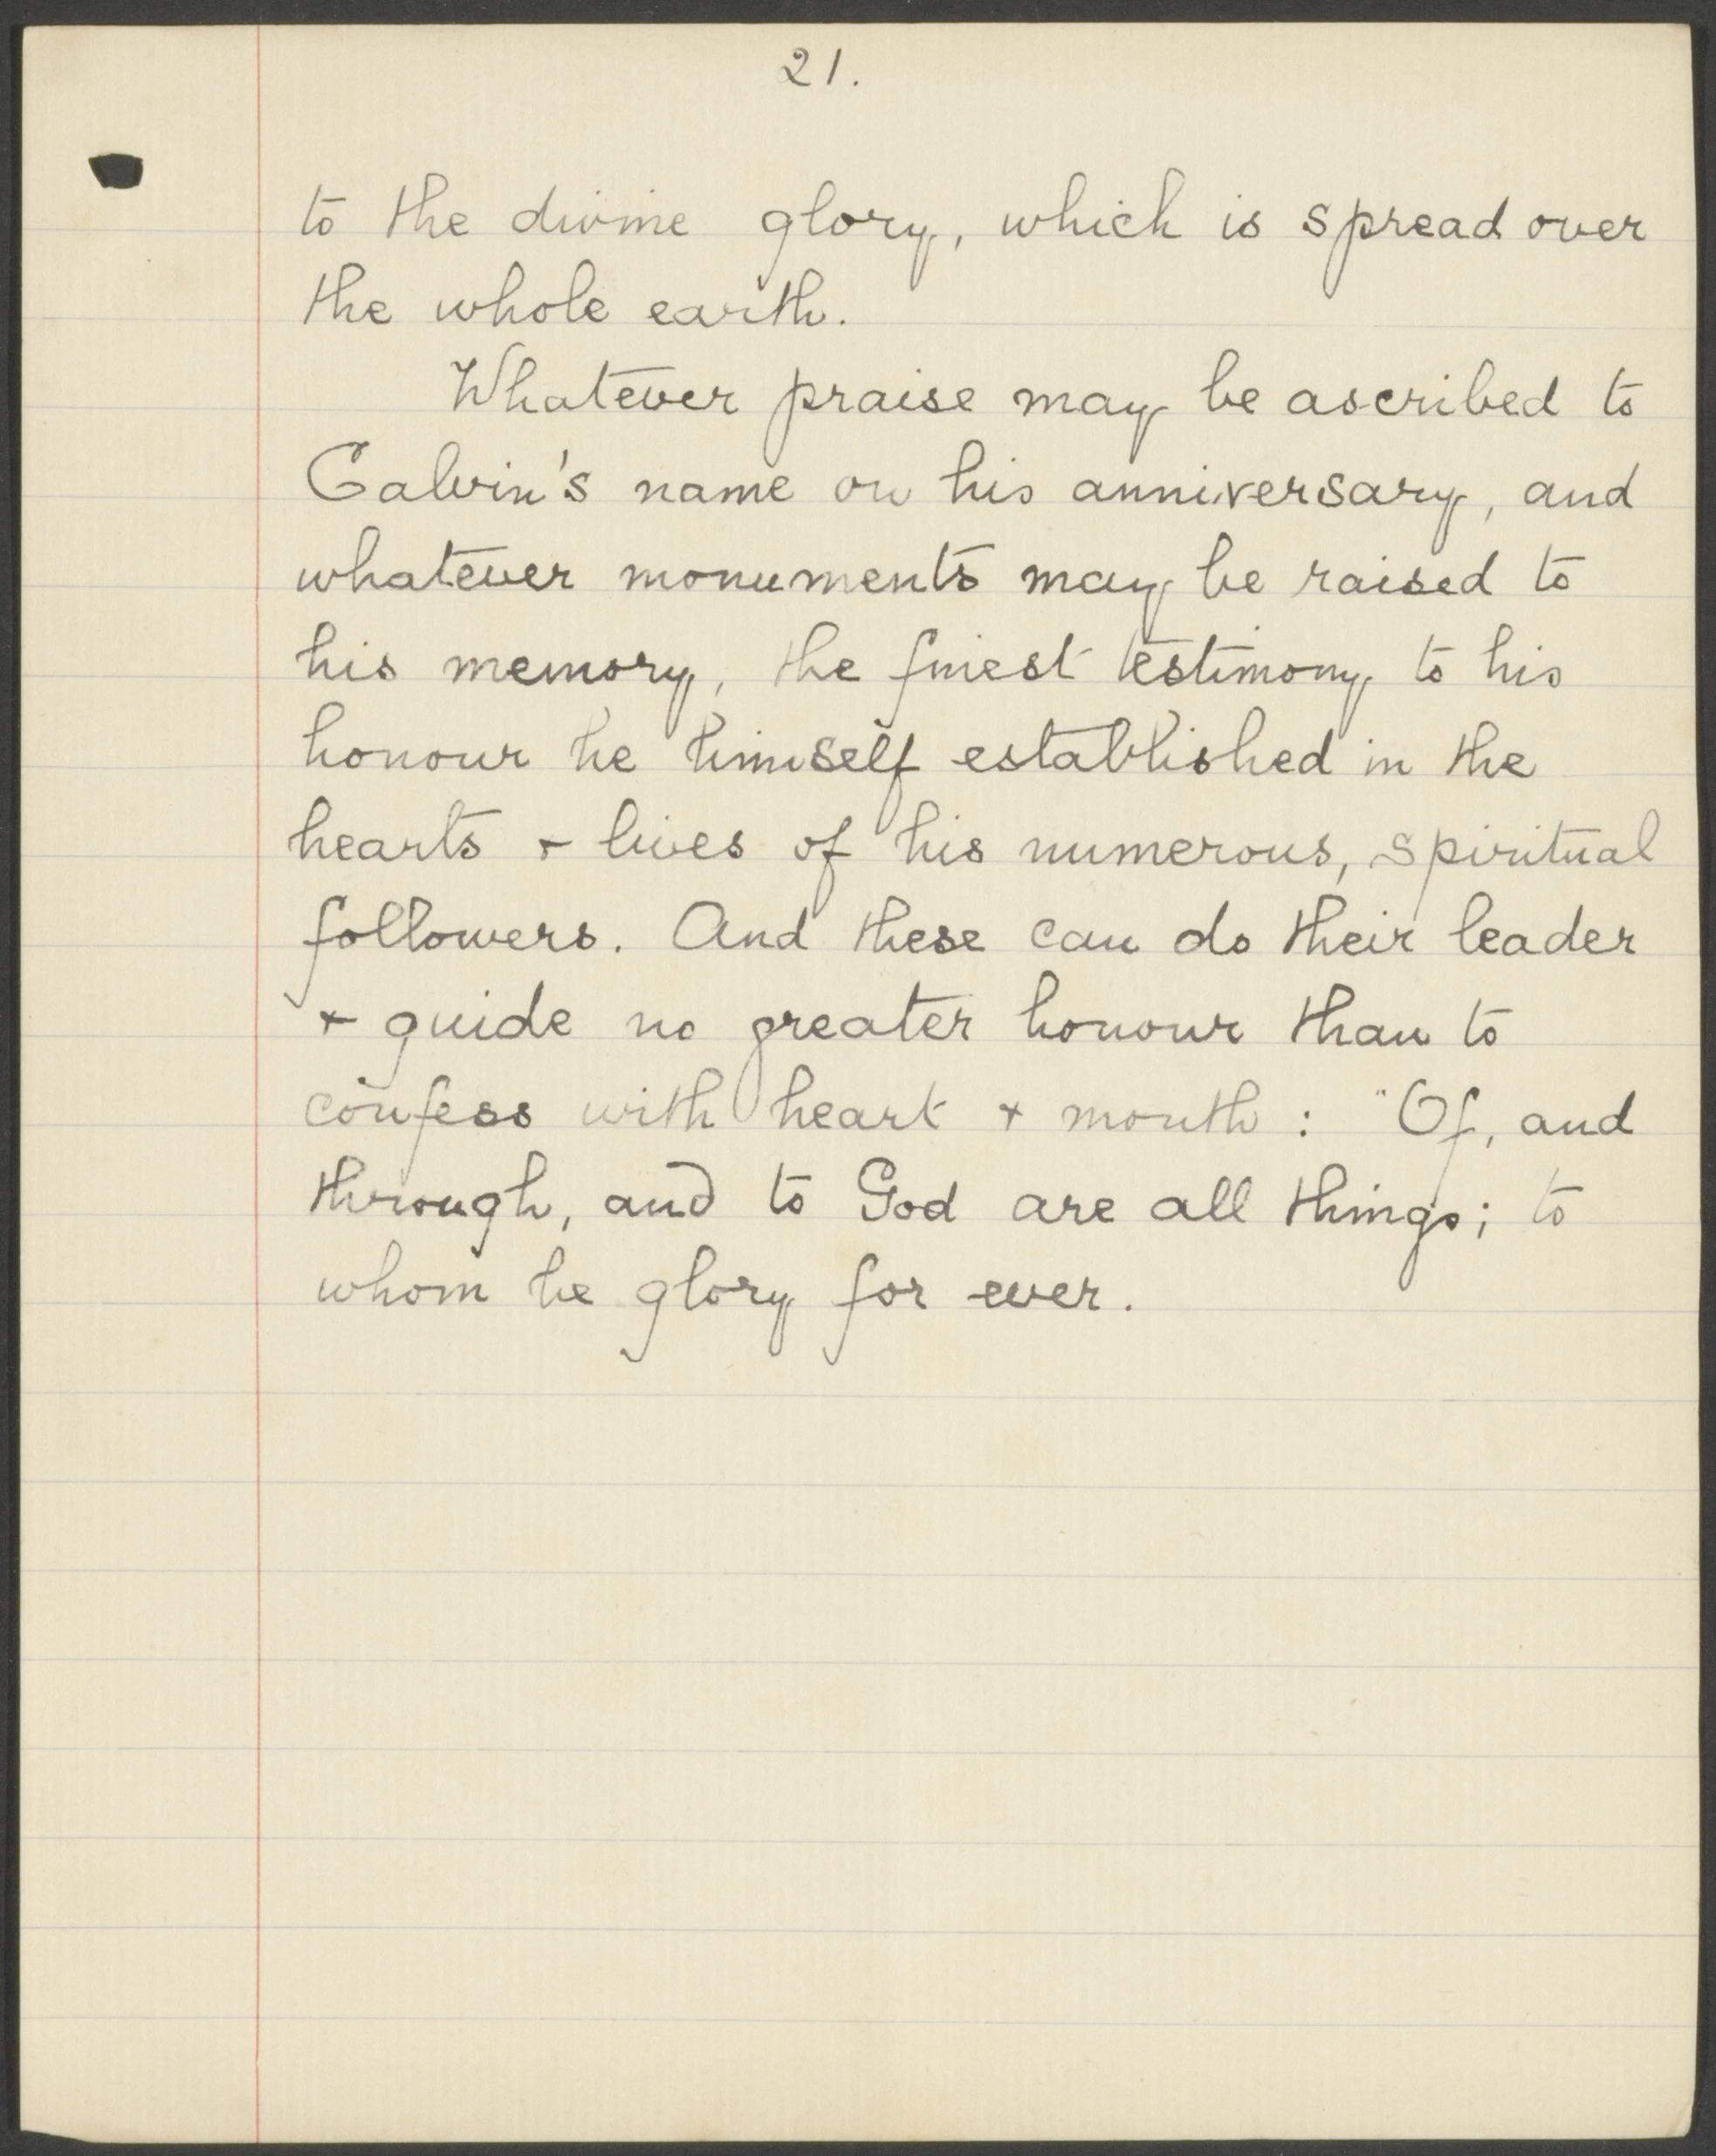 21.
to the divine glory, which is spread over
the whole earth.
Whatever praise may be ascribed to
Calvin's name on his anniversary, and
whatever monuments may be raised to
his memory, the finest testimony to his
honour he himself established in the
hearts + lives of his numerous, spiritual
followers. And these can do their leader
+ guide no greater honour than to
confess with heart + mouth : "Of, and
through, and to God are all things; to
whom be glory for ever.